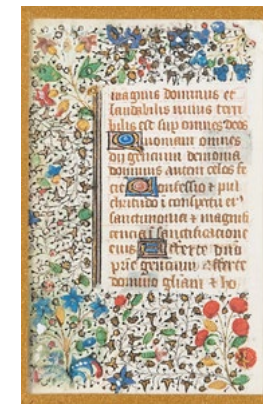 magnus dominus et
laudabilis nimis terri
bilis est sup omnes deos
Quoniam omnes
dij gencium demonia
dominus autem celos fe
cit Confessio ⁊ pul
chritudo i conspectu ei⁹
sanctimonia ⁊ magnifi
cencia i sanctificacione
eius Afferte dno
prie gencium afferte
domino gliam ⁊ ho